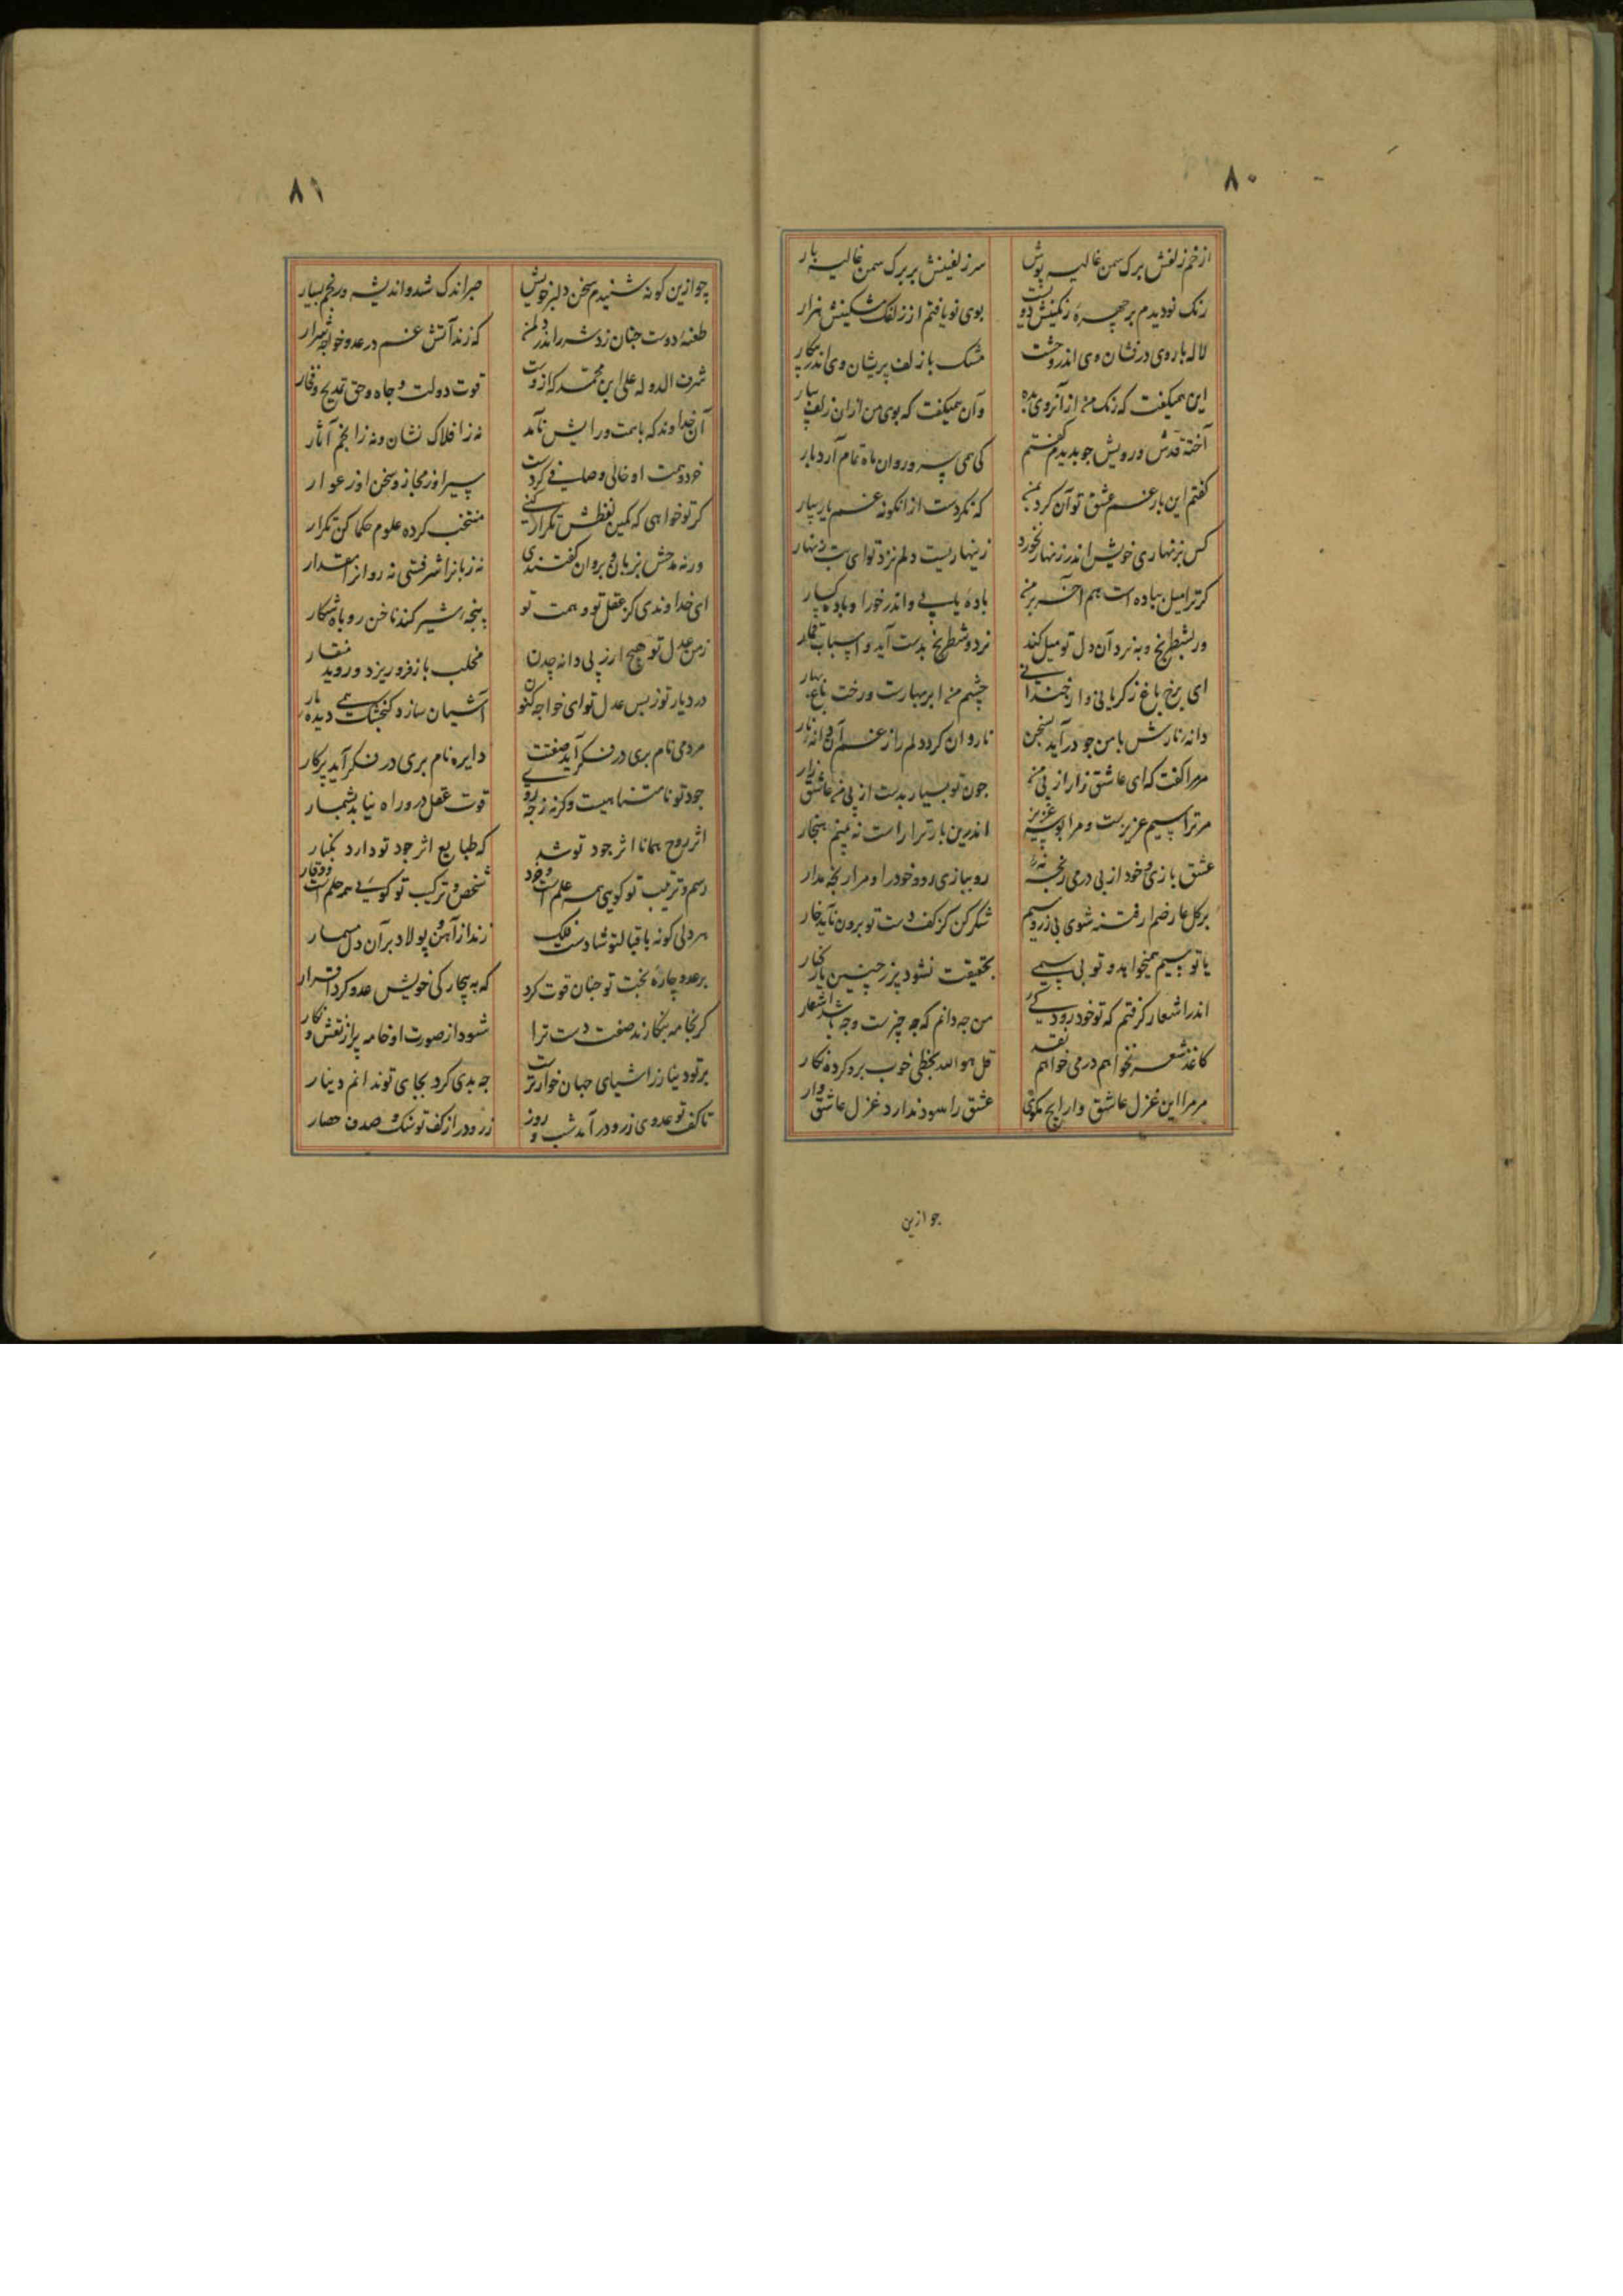 ۸۰
از خم زلفش برک سمن غالیه پوش سر زلفینش بر برک سمن غالیه بار
رنک نو دیدم بر چهرهٔ رنکینش دویست بوی نو یافتم از زلفک مشکینش هزار
لاله با روی درفشان وی اندر وحشت مشک با زلف پریشان وی اندر پیکار
این همیکفت که رنک من از آن روی بده وآن همیکفت که بوی من از آن زلف بیار
آخته قدش و رویش جو بدیدم کفتم کی همی سرو روان ماه تمام آرد بار
کفتم این بار غم عشق تو آن کرد بمن که نکردست از انکونه غم یار بیار
کس بزنهاری خویش اندر زنهار نخورد زینهاریست دلم نزد تو ای بت زنهار
کر ترا میل بباده است هم آخر بر من بادهٔ یابی و اندر خور او باده کسار
ور بشطرنج و به نرد آن دل تو میل کند نرد و شطرنج بدست آید و اسباب قمار
ای برخ باغ ز کریانی و از خندانی چشم من ابر بهارست و رخت باغ بهار
دانهٔ نارش با من جو درآید بسخن ناروان کردد دلم راز غم آن دانه نار
مر مرا کفت که ای عاشق زار از پی من جون تو بسیار بدست از پی من عاشق زار
مر ترا سیم عزیزست و مرا بوسه عزیز اندرین بار ترا راست نه بینم هنجار
عشق بازی و خود از بی درمی رنجه نهٔ رو ببازی رو و خود را و مرا رنجه مدار
بر کل عارضم ار فتنه شوی بی زر و سیم شکر کن کز کف دست تو برون ناید خار
یا تو سیم همیخواهد و تو بی سیمی بحقیقت نشود بزر چنین یار کنار
اندر اشعار کرفتم که تو خود رودکیٔ من جه دانم که جه چیزست و جه باشد اشعار
کاغذ شعر نخواهم درمی خواهم نقد قل هو الله بخطی خوب برو کرده نکار
مر مرا این غزل عاشق وار ایج مکوی عشق را سود ندارد غزل عاشق وار
جو ازین
۸۱
چو ازین کونه شنیدم سخن دلبر خویش صبر اندک شد و اندیشه و رنجم بسیار
طعنهٔ دوست جنان زد شرر اندر دلمن که زند آتش غم در عدو خواجه شرار
شرف الدوله علی ابن محمد که ازوست قوت دولت و جاه و حق تمدیح و فخار
آن خداوند که با همت ورایش نآمد نه ز افلاک نشان و نه ز انجم آثار
خرد و همت او خالی و صافی کردست سیر او ز مجاز و سخن او ز عوار
کر تو خواهی که کمین لفظش تکرار کنی منتخب کرده علوم حکما کن تکرار
ور نه مدحش بزبان و بروان کفتندی نه زبانرا شرفستی نه روانرا مقدار
ای خداوندی کز عقل تو و همت تو پنجهٔ شیر کند ناخن روباه شکار
زمن عدل تو هیچ ار ز پی دانه چدن مخلب باز فرو ریزد و روید منقار
در دیار تو ز بس عدل تو ای خواجه کنون آشیان سازد کنجشک همی دیده مار
مردمی نام بری در فکر آید صفتت دایره نام بری در فکر آید پرکار
جود تو نامتناهیست وکرنه ز جه روی قوت عقل در و راه نیابد بشمار
اثر روح همانا اثر جود تو شد که طبایع اثر جود تو دارد بکنار
رسم و ترتیب تو کویی همه علمست و خرد شخص و ترکیب تو کوئی همه حلمست و وقار
هر دلی کو نه باقبال تو شادست فلک زند از آهن و پولاد بر آن دل مسمار
بر عدو چارهٔ بخت تو جنان قوت کرد که به بیچارکی خویش عدو کرد اقرار
کر بخامه بنکارند صفت دست ترا شود از صورت او خامه پر از نقش و نکار
بر تو دینار ز اشیای جهان خوارترست جه بدی کرد بجای تو ندانم دینار
تا کف تو عدوی زر و درآمد شب و روز زر و در از کف تو سنک و صدف حصار